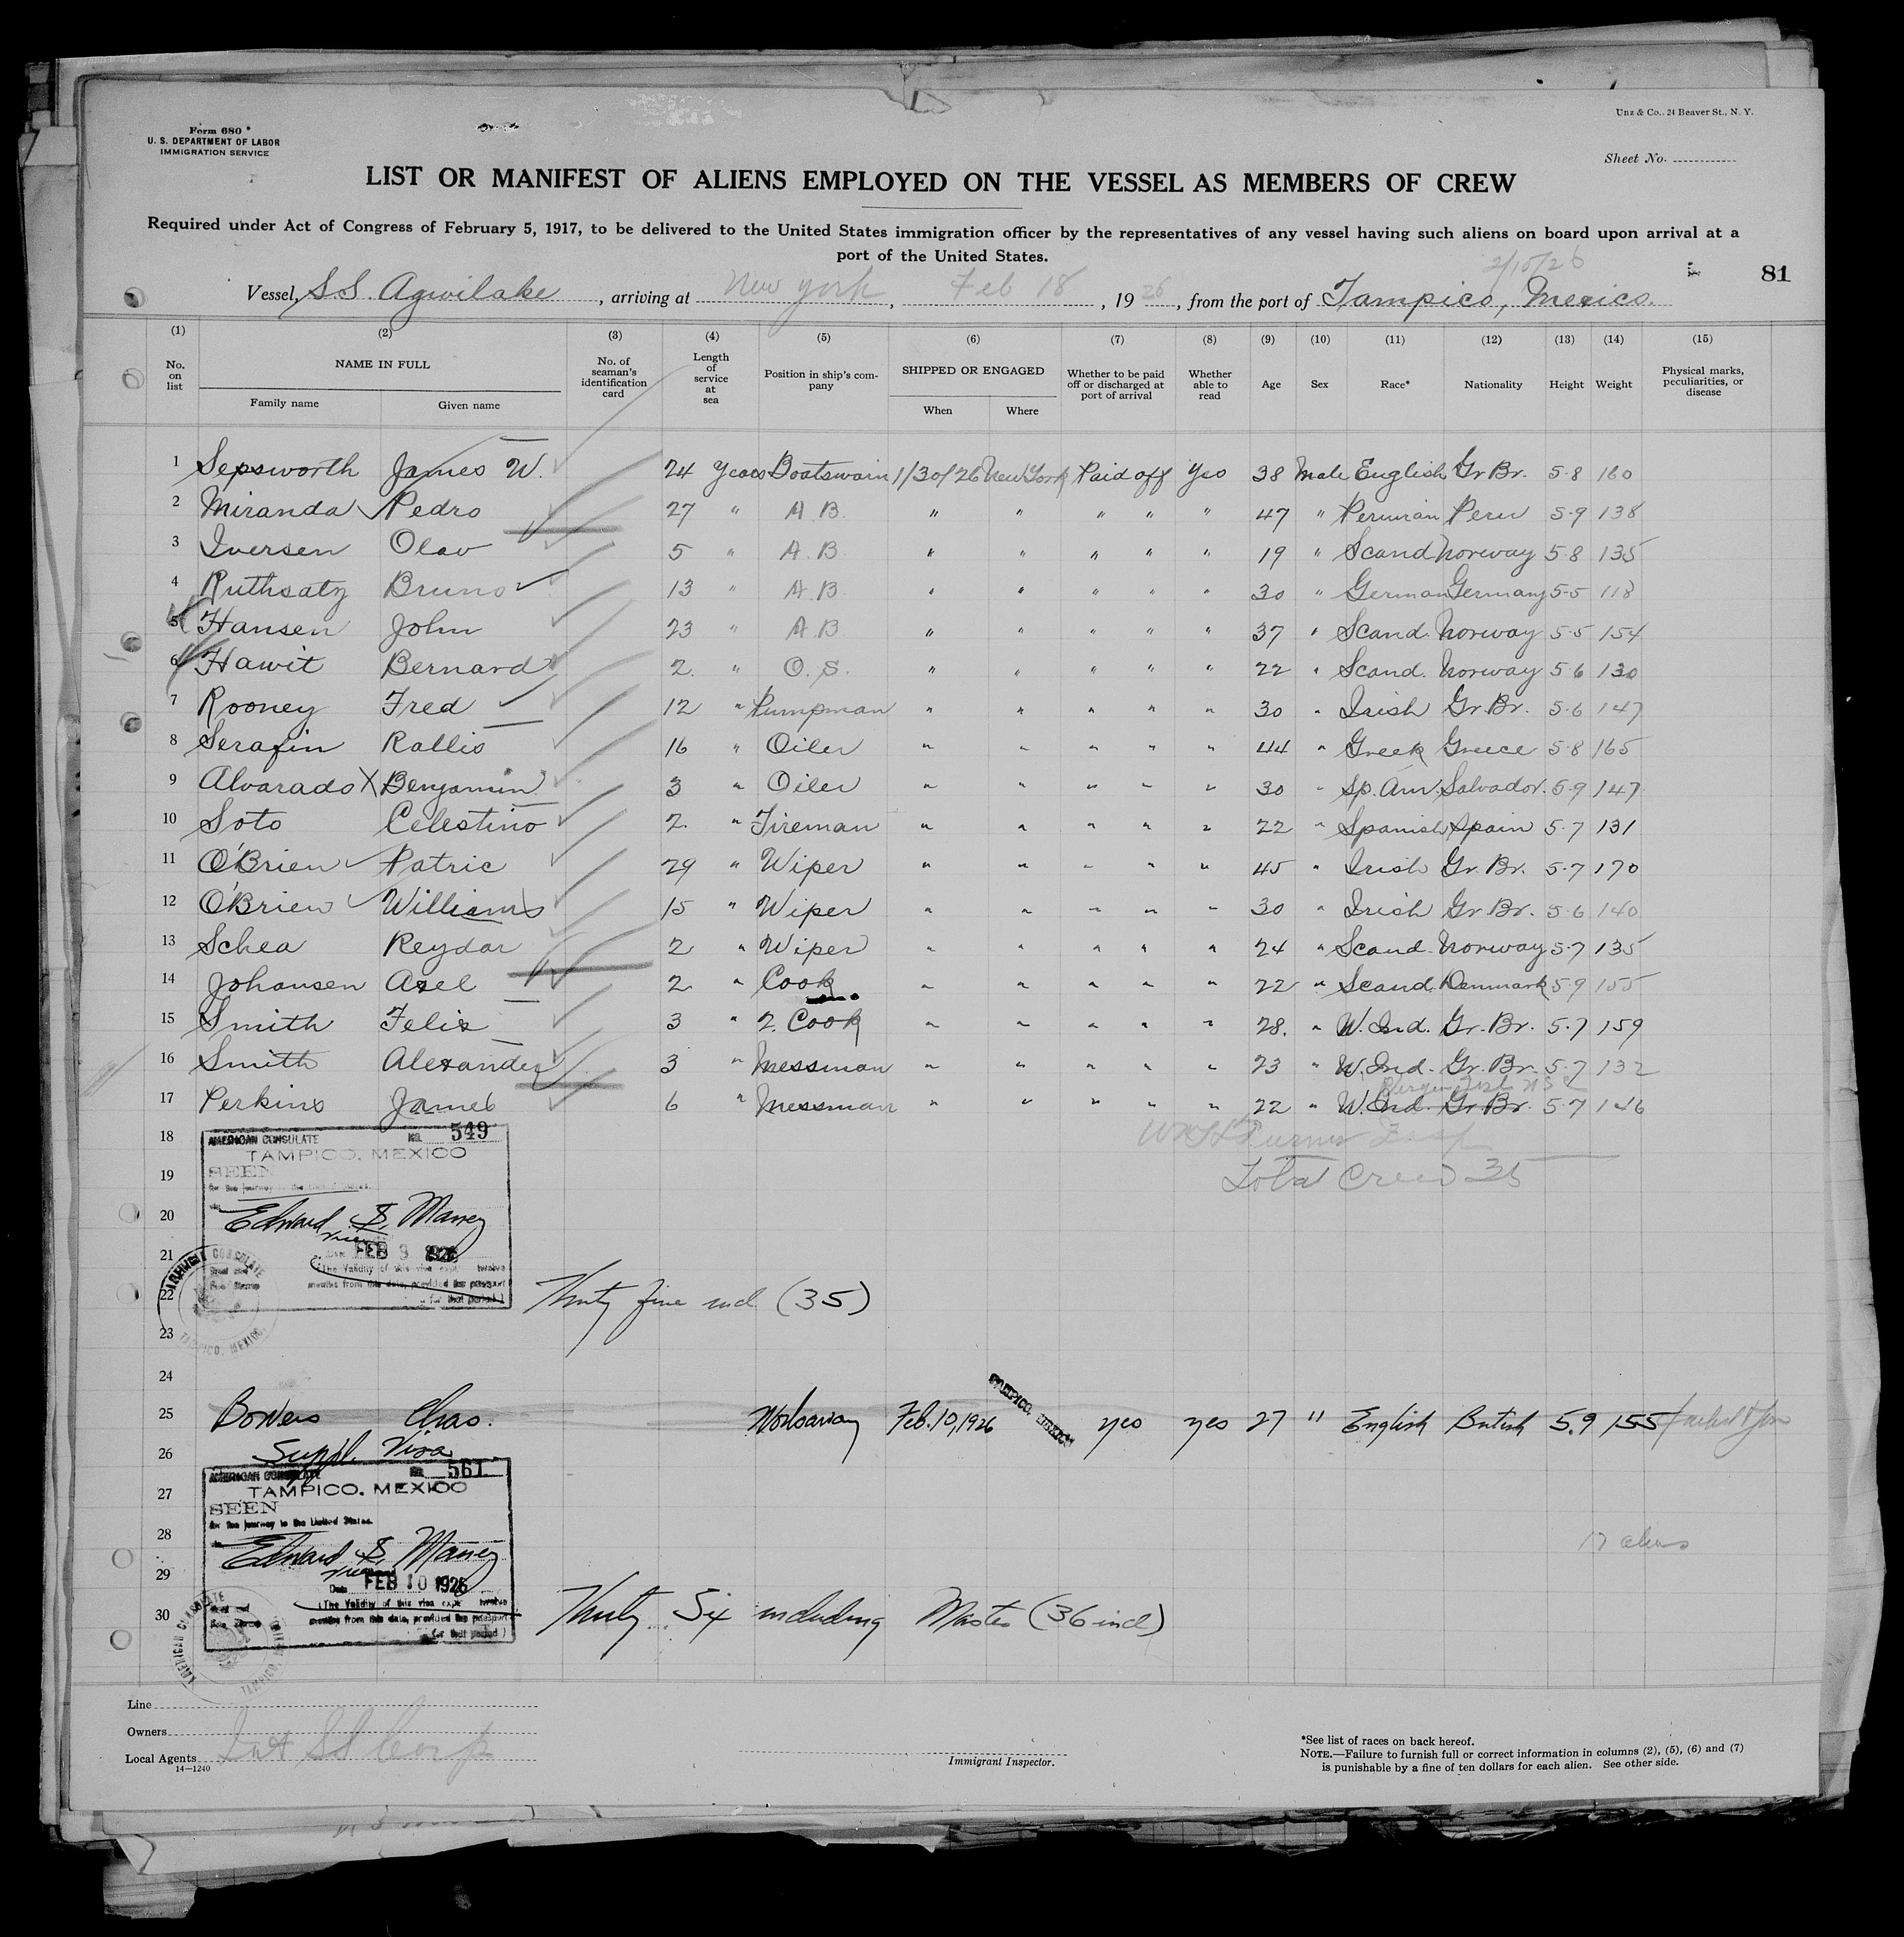 Form 680
U. S. DEPARTMENT OF LABOR
IMMIGRATION SERVICE
Unz & Co., 24 Beaver St., N. Y.
Sheet No.
LIST OR MANIFEST OF ALIENS EMPLOYED ON THE VESSEL AS MEMBERS OF CREW
Required under Act of Congress of February 5, 1917, to be delivered to the United States immigration officer by the representatives of any vessel having such aliens on board upon arrival at a
port of the United States.
2/10/26
81
Vessel, SS Agwilake, arriving at New York, Feb 18, 1926, from the port of Tampico, Mexico.
(1) (2) (3) (4) (5) (6) (7) (8) (9) (10) (11) (12) (13) (14) (15)
No. on list NAME IN FULL Family name Given name No. of seaman's identification card Length of service at sea Position in ship's company SHIPPED OR ENGAGED When Where Whether to be paid off or discharged at port of arrival Whether able to read Age Sex Race* Nationality Height Weight Physical marks, peculiarities, or disease
1 Sepsworth James W. 24 years Boatswain 1/30/26 New York Paid off Yes 38 Male English Gr. Br. 5-8 160
2 Miranda Pedro 27 " A.B. " " " " " 47 " Peruvian Peru 5-9 138
3 Iversen Olav 5 " A.B. " " " " " 19 " Scand Norway 5-8 135
4 Ruthsatz Bruno 13 " A.B. " " " " " 30 " German Germany 5-5 118
5 Hansen John 23 " A.B. " " " " " 37 " Scand. Norway 5-5 154
6 Hawit Bernard 2 " O.S. " " " " " 22 " Scand. Norway 5-6 130
7 Rooney Fred 12 " Pumpman " " " " " 30 " Irish Gr. Br. 5-6 147
8 Serafin Rallis 16 " Oiler " " " " " 44 " Greek Greece 5-8 165
9 Alvarado X Benjamin 3 " Oiler " " " " " 30 " Sp. Am. Salvador. 5-9 147
10 Soto Celestino 2 " Fireman " " " " " 22 " Spanish Spain 5-7 131
11 O'Brien Patric 29 " Wiper " " " " " 45 " Irish Gr. Br. 5-7 170
12 O'Brien Williams 15 " Wiper " " " " " 30 " Irish Gr. Br. 5-6 140
13 Schea Reydar 2 " Wiper " " " " " 24 " Scand. Norway 5-7 135
14 Johansen Axel 2 " Cook " " " " " 22 " Scand. Denmark 5-9 155
15 Smith Felix 3 " 2. Cook " " " " " 28. " W. Ind. Gr. Br. 5-7 159
16 Smith Alexander 3 " Messman " " " " " 23 " W. Ind. Gr. Br. 5-7 132
17 Perkins James 6 " Messman " " " " " 22 " W. Ind. Gr. Br. 5-7 146
18
AMERICAN CONSULATE No. 549
TAMPICO, MEXICO
19
Total Crew 35
SEEN
for the journey to the United States.
20
Edward S. Maney
Vice
21
FEB 9 1926
(The Validity of this visa expires twelve
months from this date, provided the passport
22
for that period.)
Thirty five incl (35)
AMERICAN CONSULATE
TAMPICO, MEXICO
23
24
25 Bowers Chas. Workaway Feb. 10, 1926 TAMPICO, MEXICO yes yes 27 " English British 5.9 155
26 Suppl. Visa
AMERICAN CONSULATE No. 561
27 TAMPICO, MEXICO
SEEN
for the journey to the United States.
28
17 aliens
Edward S. Maney
Vice
29
Date FEB 10 1926
(The Validity of this visa expires twelve
months from this date, provided the passport
30 Thirty Six including Master (36 incl)
for that period.)
AMERICAN CONSULATE
TAMPICO, MEXICO
Line
Owners
Local Agents
14—1240
Immigrant Inspector.
*See list of races on back hereof.
NOTE.—Failure to furnish full or correct information in columns (2), (5), (6) and (7)
is punishable by a fine of ten dollars for each alien. See other side.